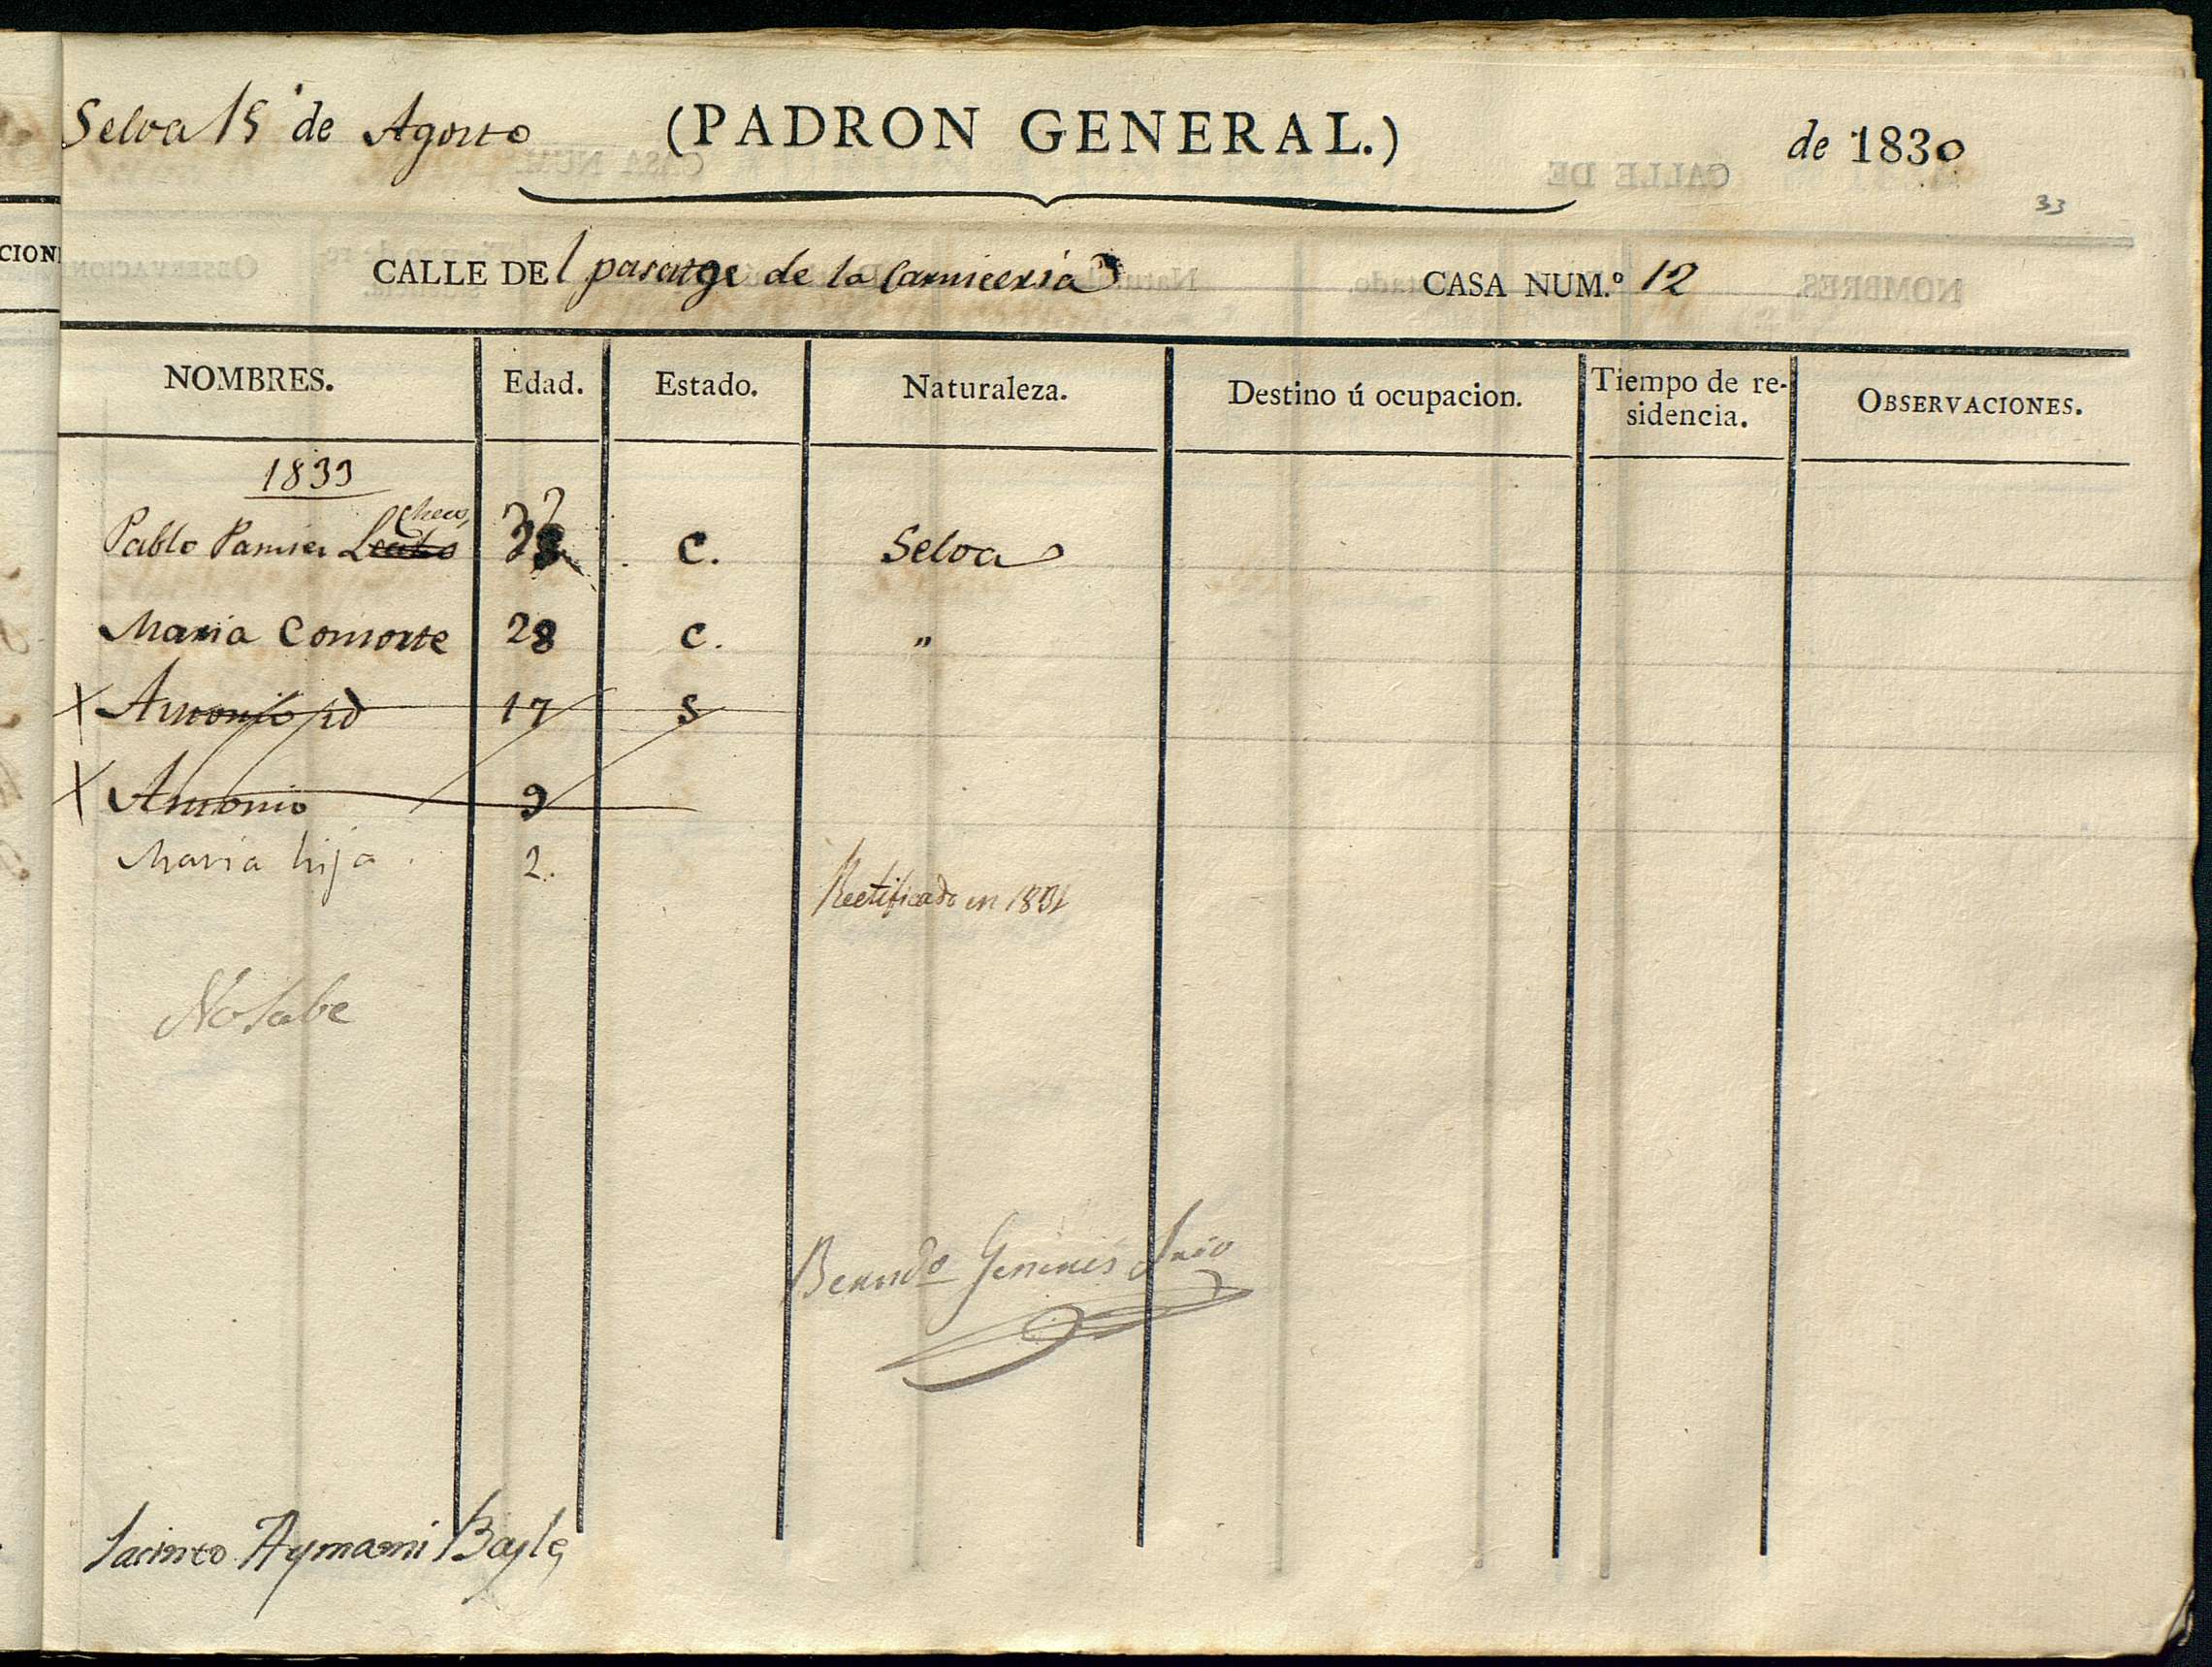 Selva 15 de Agosto (PADRON GENERAL.) de 1830
33
CALLE DEl pasatge de la Carniceria CASA NUM.º 12
CION
NOMBRES. Edad. Estado. Naturaleza. Destino ú ocupacion. Tiempo de re-
sidencia. OBSERVACIONES.
1833
Pablo Pamies C. Selva
Maria Consorte 28 C. "
X Antonio id 17 S
X Antonio 9
Maria hija. 2.
Rectificado en 1831
No Sabe
Jacinto Aymami Bayle